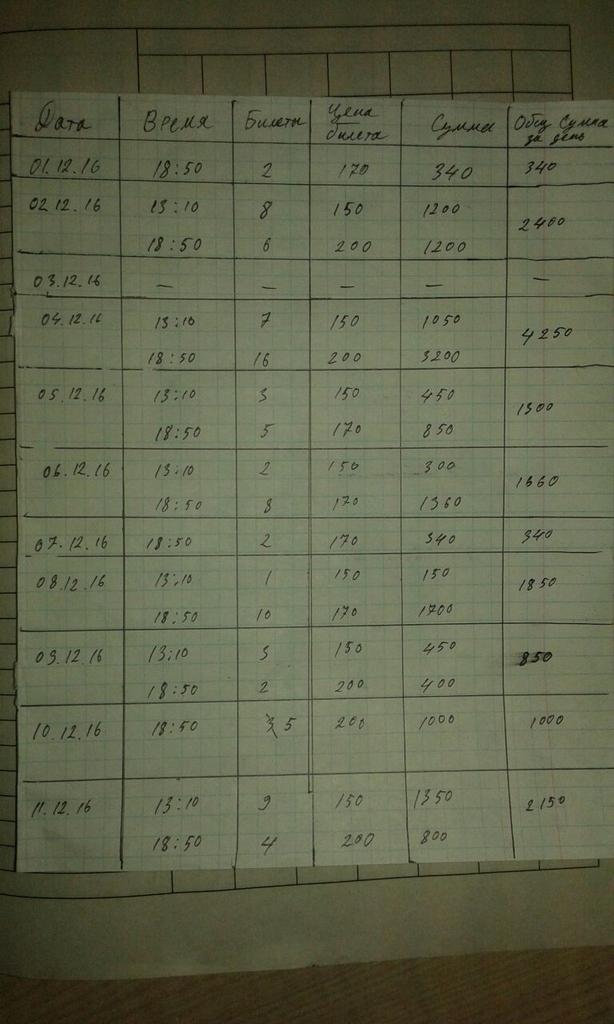 Дата Время Билеты Цена билета Сумма Общ Сумма за день
01.12.16 18:50 2 170 340 340
02.12.16 13:10 8 150 1200 2400
18:50 6 200 1200
03.12.16 — — — — —
04.12.16 13:10 7 150 1050 4250
18:50 16 200 3200
05.12.16 13:10 3 150 450 1300
18:50 5 170 850
06.12.16 13:10 2 150 300 1660
18:50 8 170 1360
07.12.16 18:50 2 170 340 340
08.12.16 13:10 1 150 150 1850
18:50 10 170 1700
09.12.16 13:10 3 150 450 850
18:50 2 200 400
10.12.16 18:50 5 200 1000 1000
11.12.16 13:10 9 150 1350 2150
18:50 4 200 800